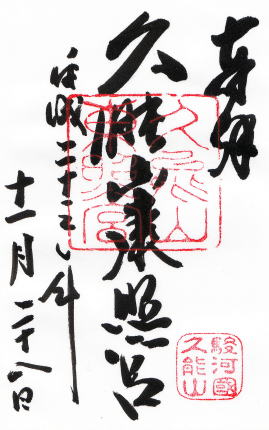 奉拝
久能山東照宮
平成二十三年
十一月二十八日
久能山
東照宮
駿河國
久能山